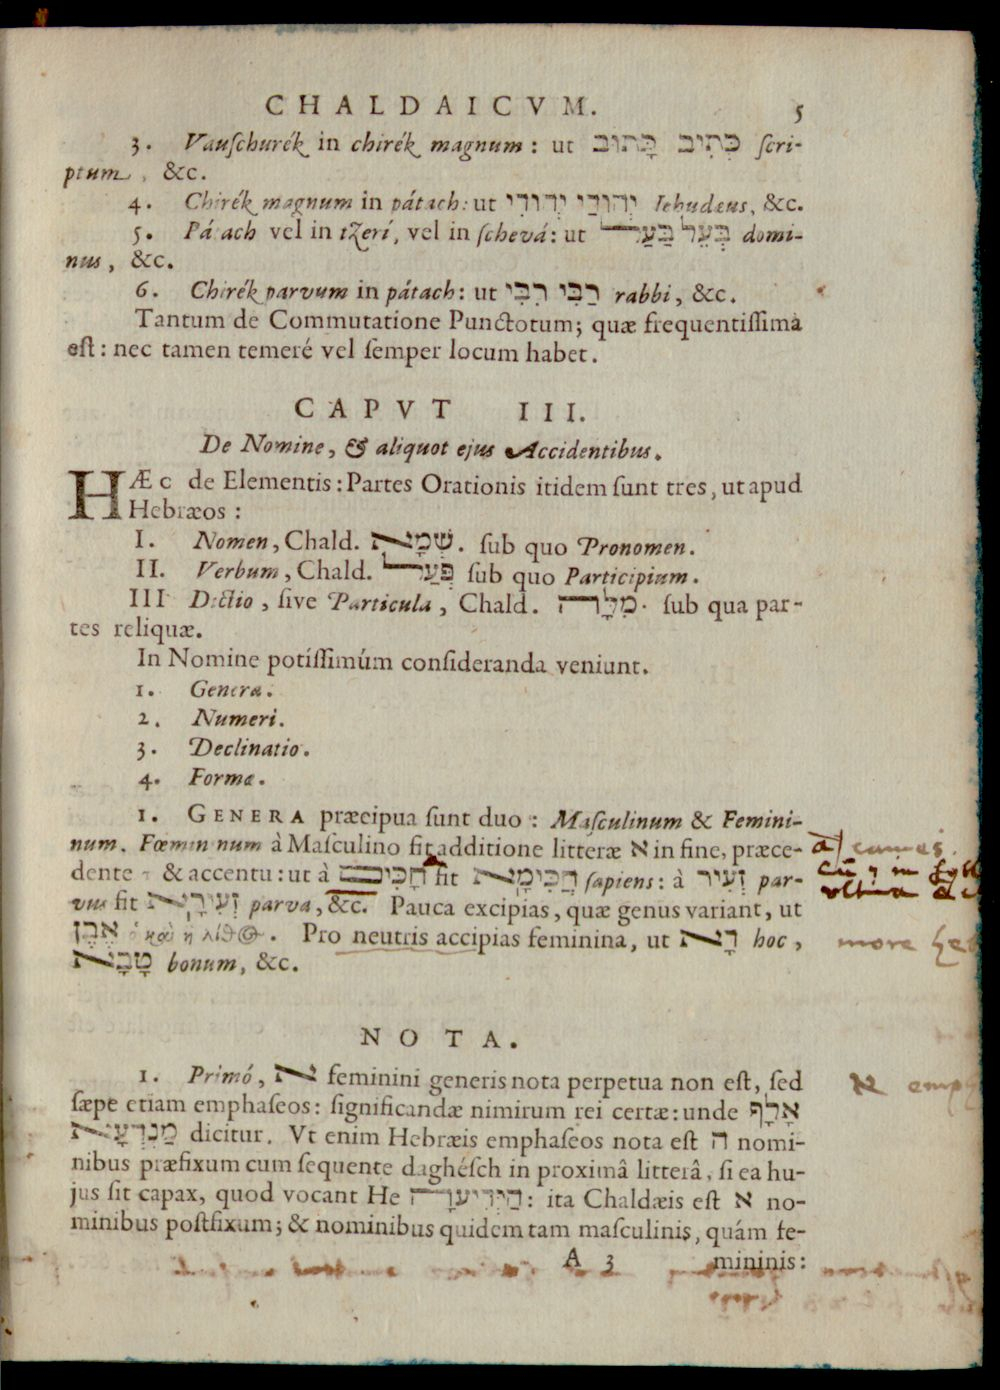 CHALDAICVM. 5
3. Vauſchurék in chirék magnum: ut כְּתִיב כָּתוּב ſcri-
ptum, &c.
4. Chirék magnum in pátach: ut יְהוּדַי יְהוּדִי Iehudæus, &c.
5. Pátach vel in tzerí, vel in ſchevá: ut בְּעֵל בַּעַל domi-
nus, &c.
6. Chirék parvum in pátach: ut רַבִּי רִבִּי rabbi, &c.
Tantum de Commutatione Punctotum; quæ frequentiſſima
eſt: nec tamen temeré vel ſemper locum habet.
CAPVT III.
De Nomine, & aliquot ejus Accidentibus.
HÆc de Elementis: Partes Orationis itidem ſunt tres, ut apud
Hebræos:
I. Nomen, Chald. שְׁמָא. ſub quo Pronomen.
II. Verbum, Chald. פְּעַל ſub quo Participium.
III Dictio, ſive Particula, Chald. מִלָּה. ſub qua par-
tes reliquæ.
In Nomine potíſſimúm conſideranda veniunt.
1. Genera.
2. Numeri.
3. Declinatio.
4. Formæ.
1. GENERA præcipua ſunt duo: Maſculinum & Femini-
num. Fœmininum à Maſculino fit additione litteræ א in fine, præce-
dente ָ & accentu: ut à חֲכִּים fit חֲכִּימָא ſapiens: à זְעֵיר par-
vus fit זְעֵירָא parva, &c. Pauca excipias, quæ genus variant, ut
אֶבֶן ὁ καὶ ἡ λίθος. Pro neutris accipias feminina, ut דָא hoc,
טָבָא bonum, &c.
a) cames
cū ָ in ſyll
ultima
more
NOTA.
1. Primó, א feminini generis nota perpetua non eſt, ſed
ſæpe etiam emphaſeos: ſignificandæ nimirum rei certæ: unde אָלֶף
מַנְדְּעָא dicitur. Vt enim Hebræis emphaſeos nota eſt ה nomi-
nibus præfixum cum ſequente daghéſch in proximâ litterâ, ſi ea hu-
jus ſit capax, quod vocant He הַיְדִיעָה: ita Chaldæis eſt א no-
minibus poſtfixum; & nominibus quidem tam maſculinis, quám fe-
א emph
A 3 mininis: